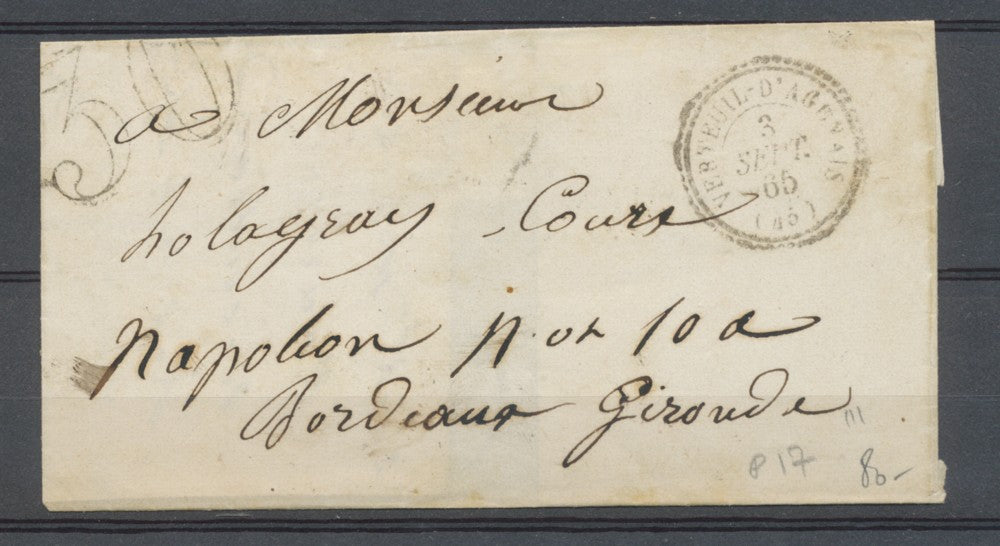 30
VERTEUIL-D'AGENAIS
3
SEPT.
65
(45)
a Monsieur
holagray Cours
Napoleon n ot 10 a
Bordeaux Gironde
P 17
80-